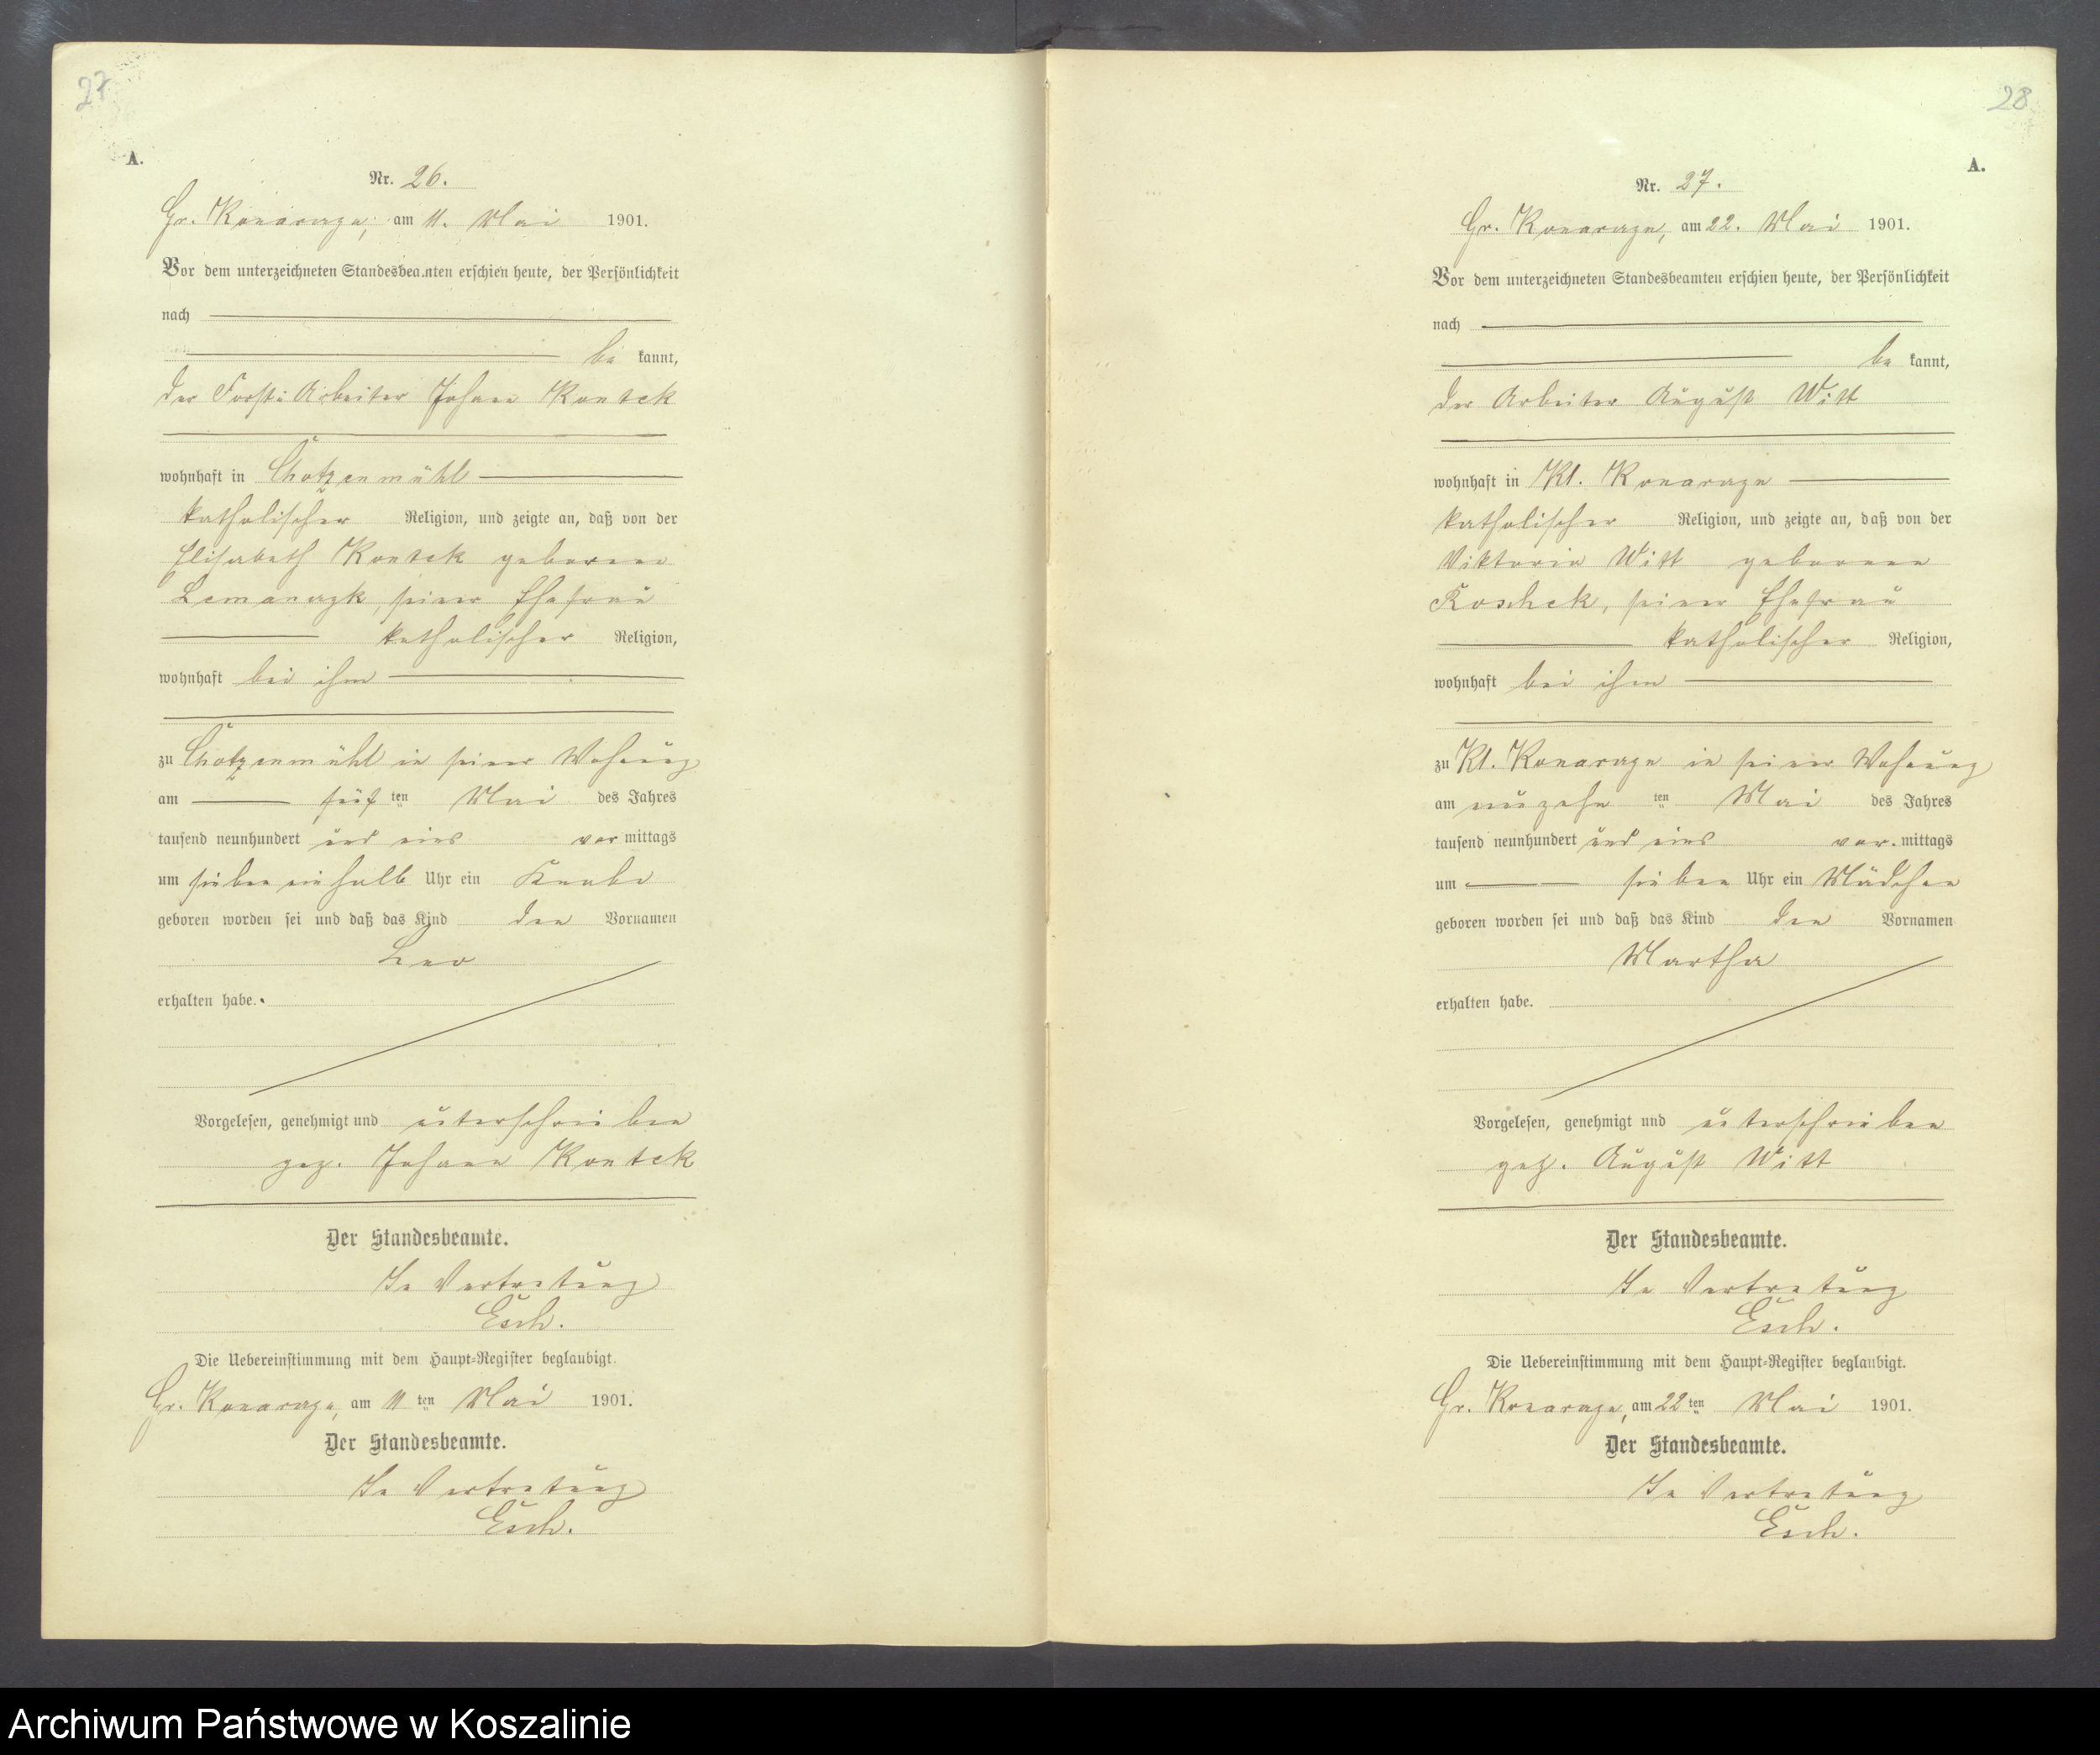 27
A.
Nr. 26.
Gr. Konarzyn, am 11. Mai 1901.
Vor dem unterzeichneten Standesbeamten erschien heute, der Persönlichkeit
nach
be kannt,
der Forst-Arbeiter Johann Kontek
wohnhaft in Chotzenmühl
katholischer Religion, und zeigte an, daß von der
Elisabeth Kontek geborenen
Lemanczk, seiner Ehefrau
katholischer Religion,
wohnhaft bei ihm
zu Chotzenmühl in seiner Wohnung
am fünften Mai des Jahres
tausend neunhundert und eins vor mittags
um sieben ein halb Uhr ein Knabe
geboren worden sei und daß das Kind den Vornamen
Leo
erhalten habe.
Vorgelesen, genehmigt und unterschrieben
gez. Johann Kontek
Der Standesbeamte.
In Vertretung
Esch.
Die Uebereinstimmung mit dem Haupt-Register beglaubigt.
Gr. Konarzyn, am 11 ten Mai 1901.
Der Standesbeamte.
In Vertretung
Esch.
28
A.
Nr. 27.
Gr. Konarzyn, am 22. Mai 1901.
Vor dem unterzeichneten Standesbeamten erschien heute, der Persönlichkeit
nach
be kannt,
der Arbeiter August Witt
wohnhaft in Kl. Konarzyn
katholischer Religion, und zeigte an, daß von der
Viktoria Witt geborenen
Koschek, seiner Ehefrau
katholischer Religion,
wohnhaft bei ihm
zu Kl. Konarzyn in seiner Wohnung
am neunzehn ten Mai des Jahres
tausend neunhundert und eins vor. mittags
um sieben Uhr ein Mädchen
geboren worden sei und daß das Kind den Vornamen
Martha
erhalten habe.
Vorgelesen, genehmigt und unterschrieben
gez. August Witt
Der Standesbeamte.
In Vertretung
Esch.
Die Uebereinstimmung mit dem Haupt-Register beglaubigt.
Gr. Konarzyn, am 22 ten Mai 1901.
Der Standesbeamte.
In Vertretung
Esch.
Archiwum Państwowe w Koszalinie